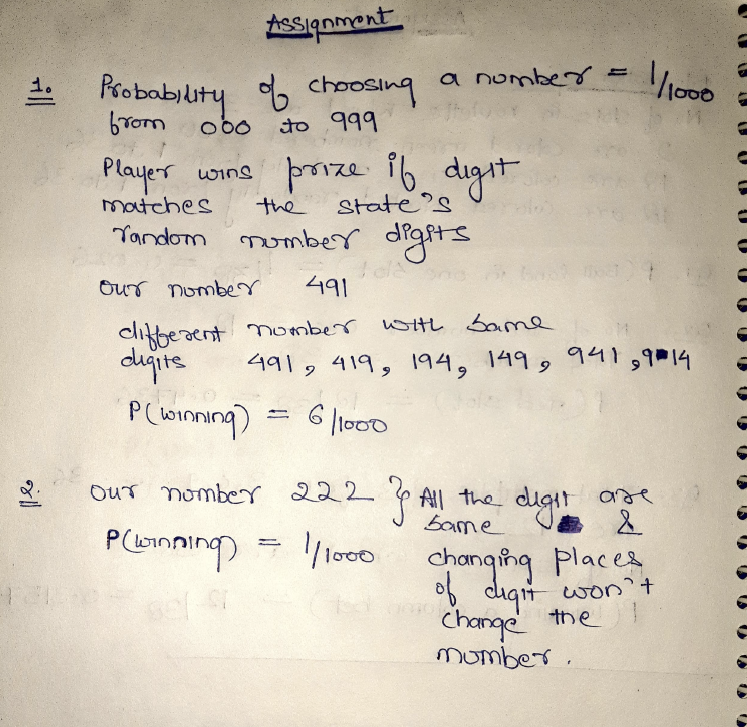 Assignment
1. Probability of choosing a number = 1/1000
from 000 to 999
Player wins prize if digit
matches the state's
random number digits
our number 491
different number with same
digits 491, 419, 194, 149, 941, 914
P(winning) = 6/1000
2. our number 222 } All the digit are
same &
P(winning) = 1/1000 changing places
of digit won't
change the
number.